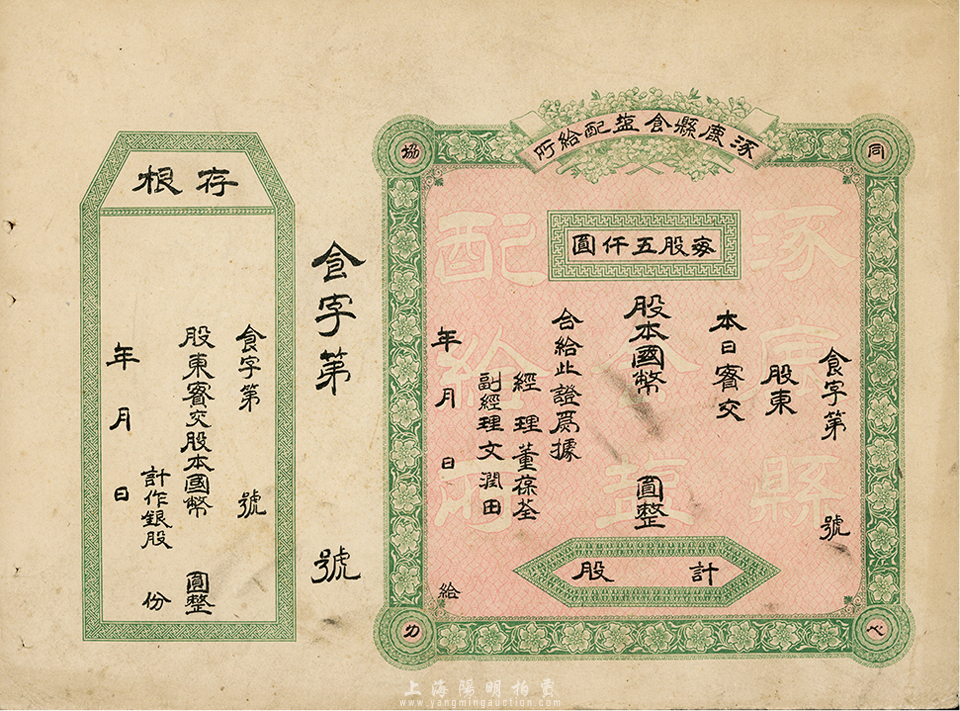 涿鹿縣食盐配給所
同
心
協
力
涿鹿縣
食盐
配給所
每股五仟圓
食字第 號
股東
本日賓交
股本國幣 圓整
計 股
合給此證爲據
經理董葆荃
副經理文潤田
年月日 給
食字第 號
存根
食字第 號
股東賓交股本國幣 圓整
計作銀股 份
年月日
上海陽明拍賣
www.yangmingauction.com